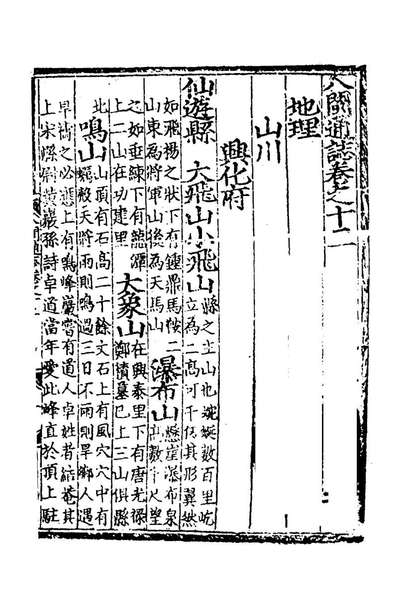 八閩通誌卷之十二
地理
山川
興化府
仙遊縣 大飛山小飛山 縣之主山也蜿蜒數百里屹
立為二高可千仞其形翼然
如飛揚之狀下有鍾鼎馬鞍二
山東為將軍山後為天馬山 瀑布山 懸崖瀑布泉
高數千尺望
之如垂練下有龍潭
上二山在功建里 大象山 在興泰里下有唐光禄
鄭積墓已上三山俱縣
北 鳴山 山頂有石高二十餘丈石上有風穴穴中有
天將雨則鳴過三日不雨則旱鄉人遇
旱禱之必應上有鳴峰巖嘗有道人卓姓者結菴其
上宋縣尉黃巖孫詩卓道當年愛此峰直於頂上駐